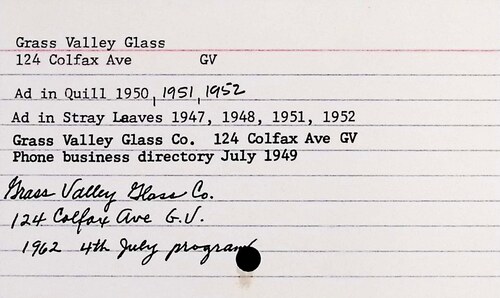 Grass Valley Glass
124 Colfax Ave GV
Ad in Quill 1950, 1951, 1952
Ad in Stray Leaves 1947, 1948, 1951, 1952
Grass Valley Glass Co. 124 Colfax Ave GV
Phone business directory July 1949
Grass Valley Glass Co.
124 Colfax Ave G.V.
1962 4th July program